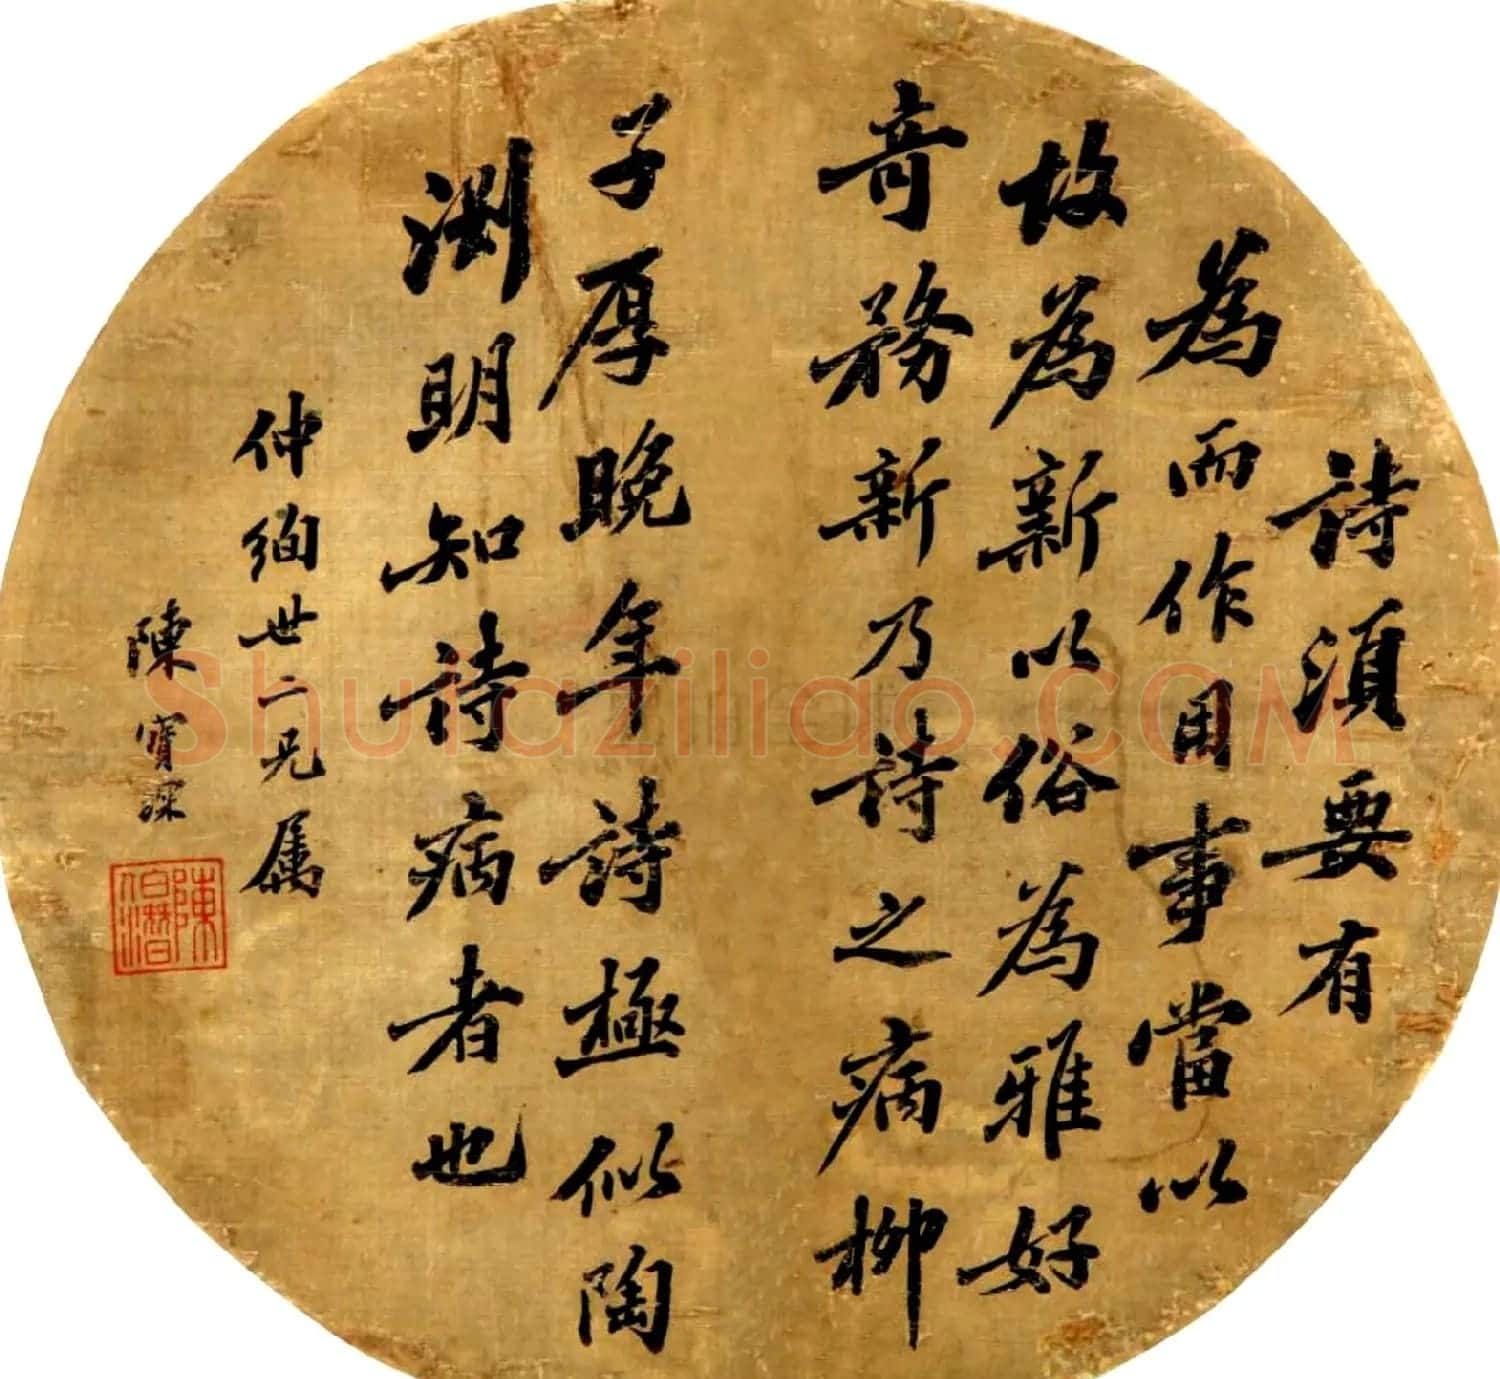 詩須要有
為而作用事當以
故為新以俗為雅好
奇務新乃詩之病柳
子厚晚年詩極似陶
淵明知詩病者也
仲絢世二兄属
陳寶琛
陳伯潛
Shufaziliao.COM